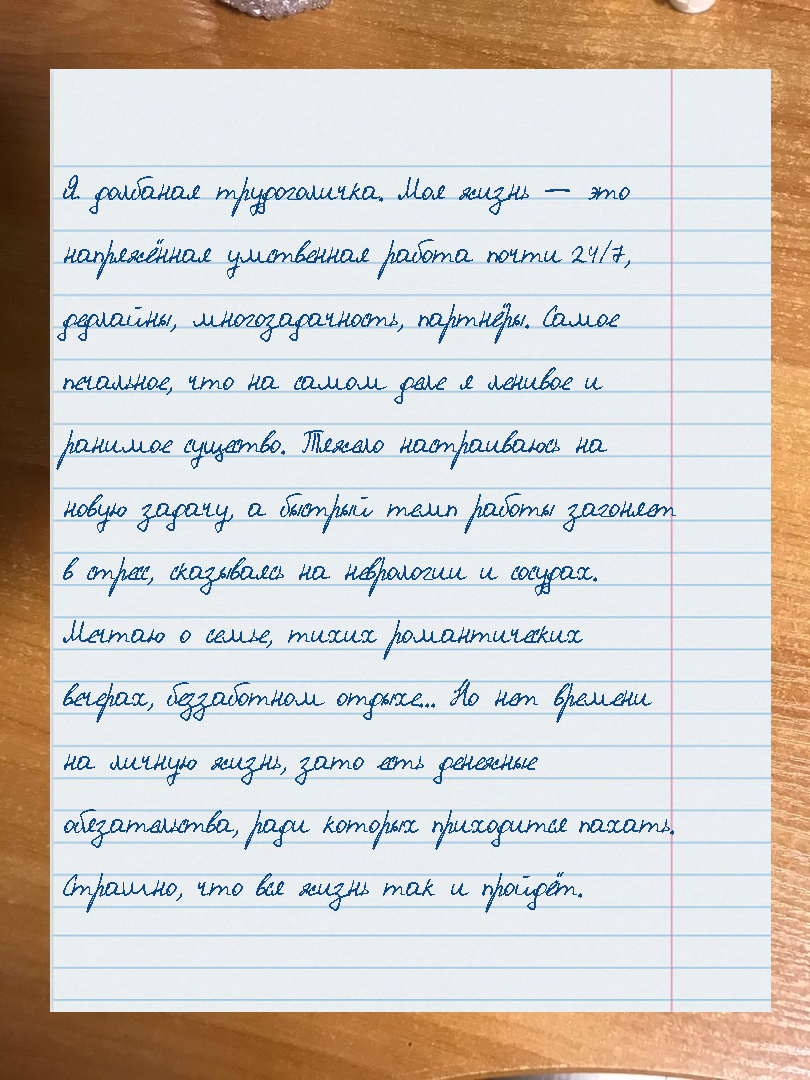 Я долбаная трудоголичка. Моя жизнь — это
напряжённая умственная работа почти 24/7,
дедлайны, многозадачность, партнёры. Самое
печальное, что на самом деле я ленивое и
ранимое существо. Тяжело настраиваюсь на
новую задачу, а быстрый темп работы загоняет
в стресс, сказываясь на неврологии и сосудах.
Мечтаю о семье, тихих романтических
вечерах, беззаботном отдыхе... Но нет времени
на личную жизнь, зато есть денежные
обязательства, ради которых приходится пахать.
Страшно, что вся жизнь так и пройдёт.